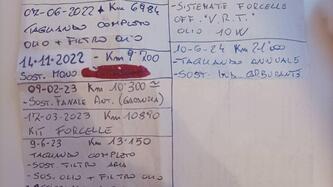 07-06-2022 Km 6984
TAGLIANDO COMPLETO
OLIO + FILTRO OLIO
14-11-2022 - Km 9'200
SOST. MONO
09-02-23 Km 10'300
- SOST. FANALE ANT. (GARANZIA)
17-03-2023 Km 10890
KIT FORCELLE
9-6-23 Km 13'150
- TAGLIANDO COMPLETO
- SOST FILTRO ARIA
- SOS. OLIO + FILTRO OLIO
- SISTEMATE FORCELLE
OFF. "V.R.T."
OLIO 10W
10-6-24 Km 21'000
- TAGLIANDO ANNUALE
- SOST. CARBURANTE